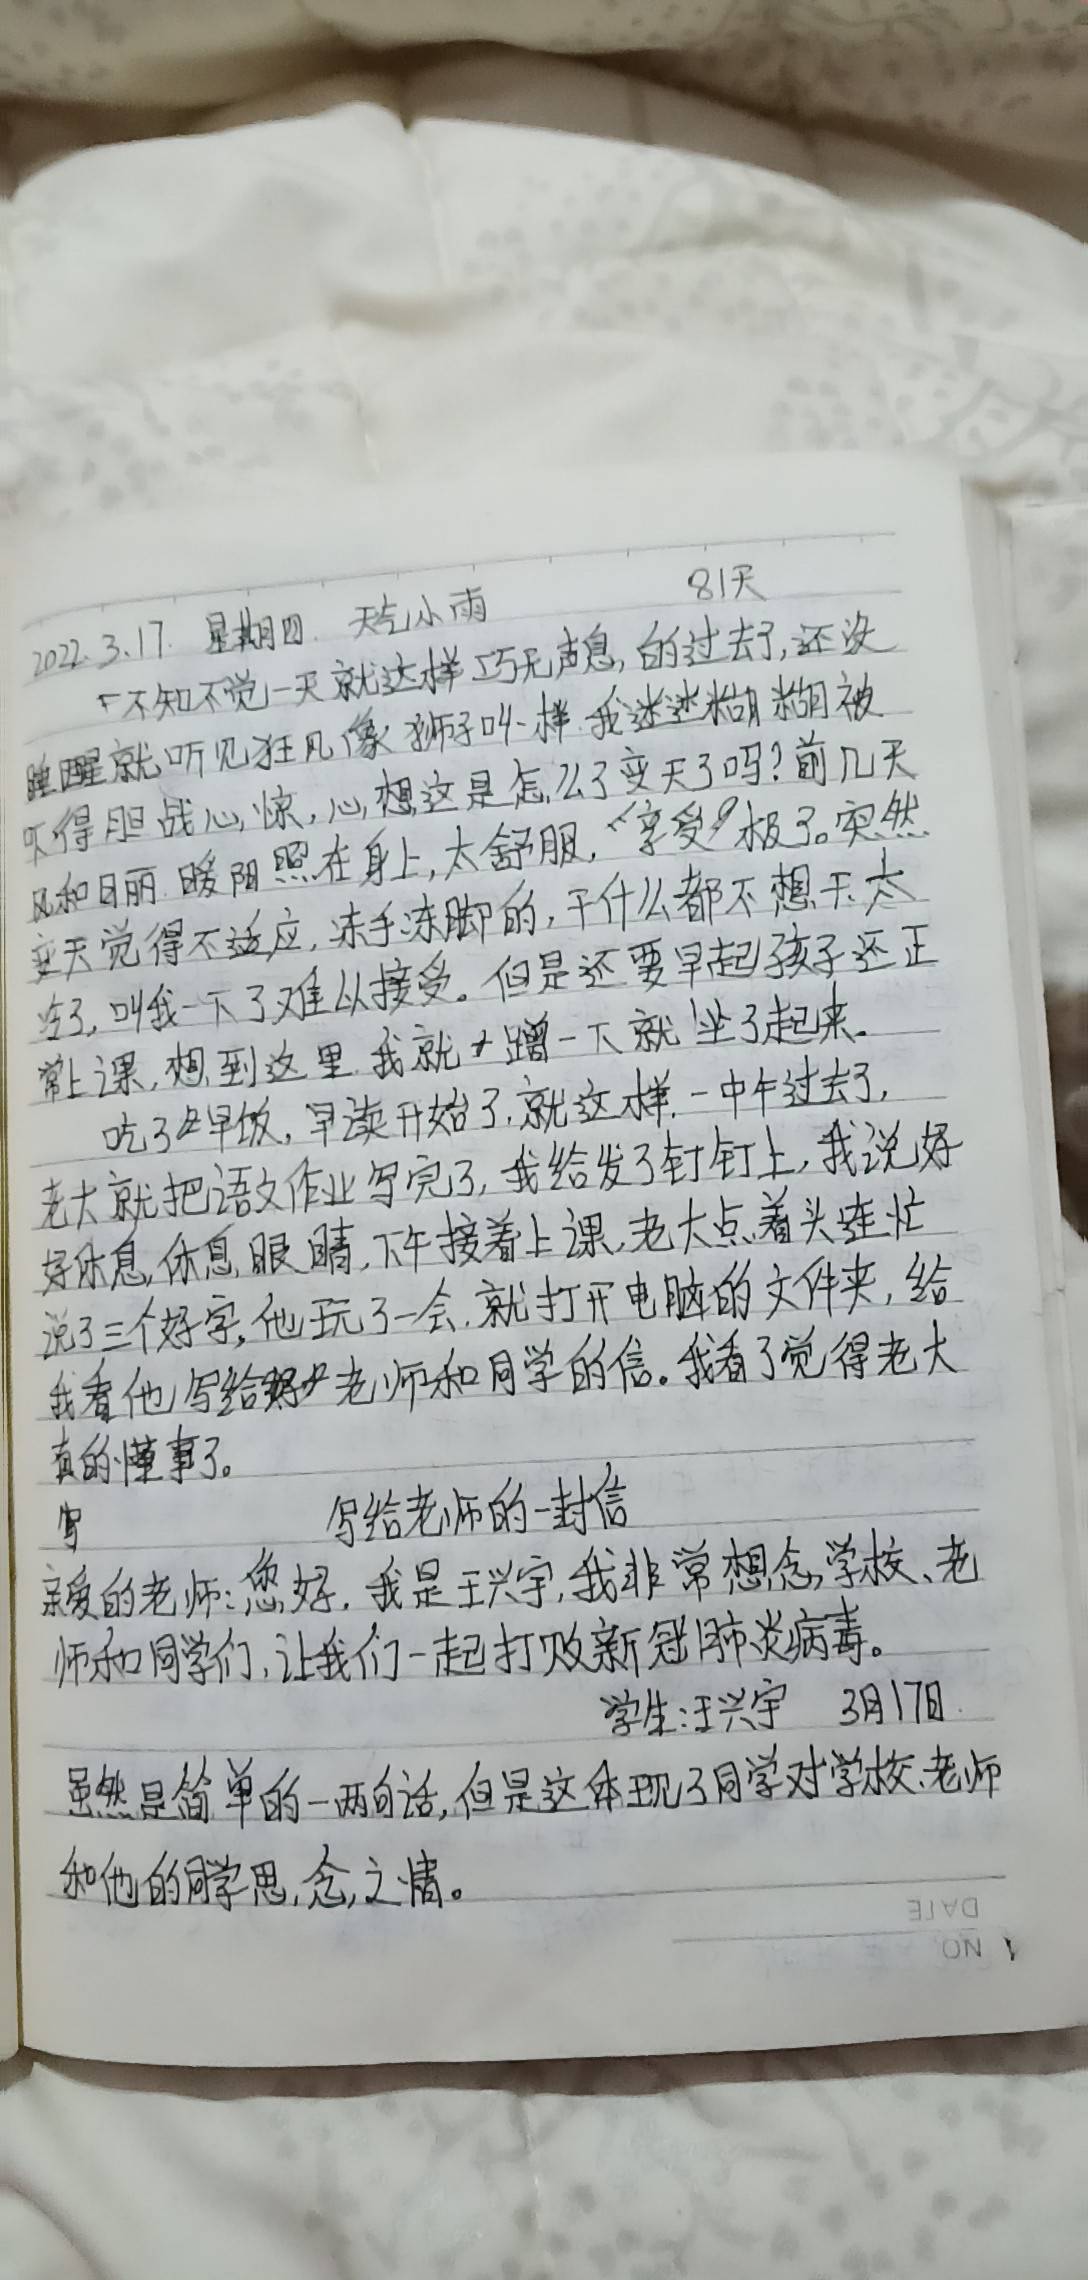 2022.3.17. 星期四. 天气小雨 81天
不知不觉一天就这样巧无声息,的过去了,还没
睡醒就听见狂风像狮子叫一样.我迷迷糊糊被
吓得胆战心惊,心想这是怎么了变天了吗?前几天
风和日丽.暖阳照在身上,太舒服,“享受”极了。突然
变天觉得不适应,冻手冻脚的,干什么都不想干.太
冷了,叫我一下了难以接受。但是还要早起孩子还正
常上课,想到这里.我就蹭一下就坐了起来.
吃了早饭,早读开始了.就这样.一中午过去了,
老大就把语文作业写完了,我给发了钉钉上,我说好
好休息,休息眼睛,下午接着上课,老大点着头连忙
说了三个好字,他玩了一会.就打开电脑的文件夹,给
我看他写给老师和同学的信。我看了觉得老大
真的懂事了。
写 写给老师的一封信
亲爱的老师:您好.我是王兴宇,我非常想念学校、老
师和同学们,让我们一起打败新冠肺炎病毒。
学生:王兴宇 3月17日.
虽然是简单的一两句话,但是这体现了同学对学校、老师
和他的同学思念之情。
DATE
NO.